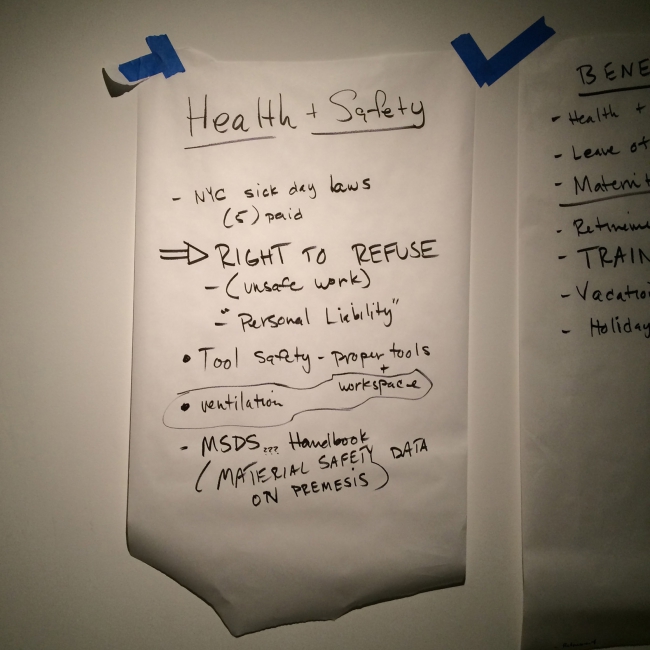 Health + Safety
- NYC sick day laws
(5) paid
⇒ RIGHT TO REFUSE
- (unsafe work)
- "Personal Liability"
• Tool Safety - proper tools
+
workspace
• ventilation
- MSDS... Handbook
(MATERIAL SAFETY DATA
ON PREMESIS)
BENE
- Health +
- Leave of
- Materni
- Retireme
- TRAIN
- Vacatio
- Holiday